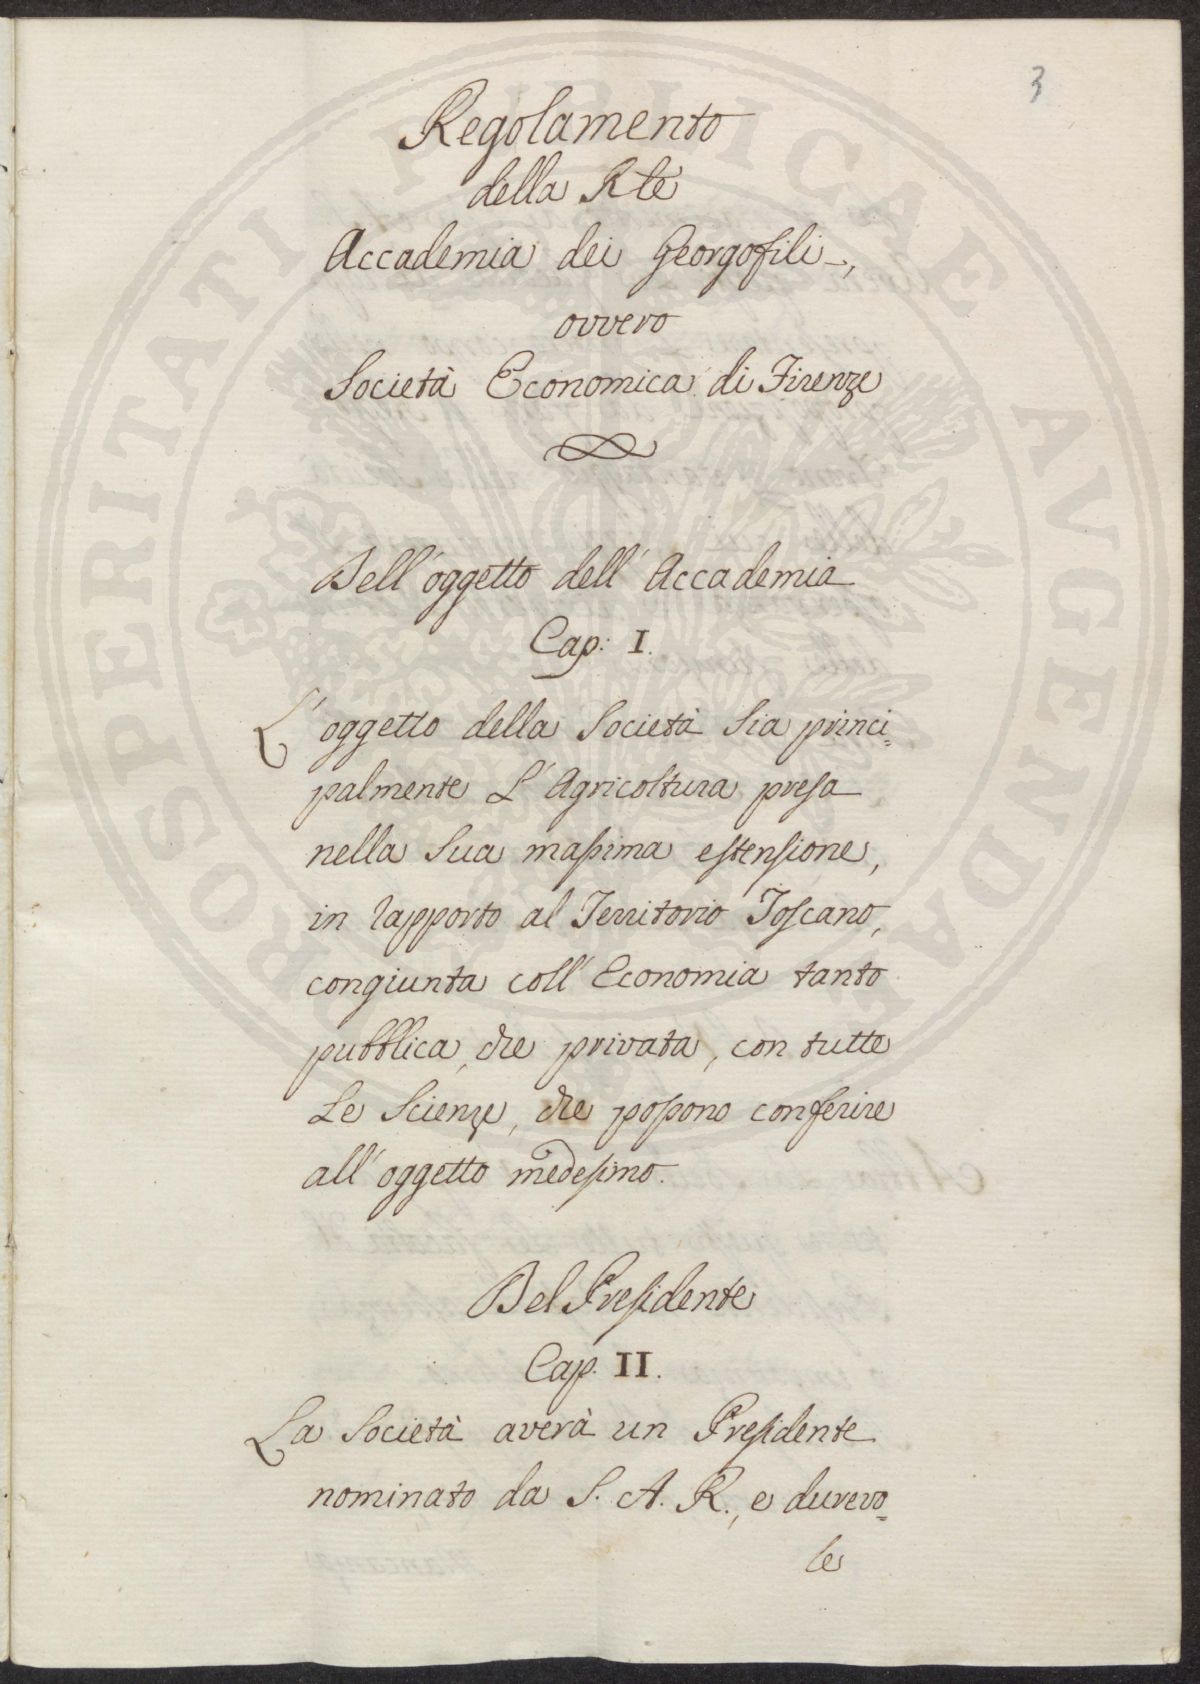 3
Regolamento
della Rle
Accademia dei Georgofili,
ovvero
Società Economica di Firenze
Dell'oggetto dell'Accademia
Cap: I.
L'oggetto della Società sia princi=
palmente L'Agricoltura presa
nella sua massima estensione,
in rapporto al Territorio Toscano,
congiunta coll'Economia tanto
pubblica, che privata, con tutte
Le Scienze, che possono conferire
all'oggetto medesimo.
Del Presidente
Cap. II.
La Società averà un Presidente
nominato da S. A. R., e durevo=
le
PROSPERITATI PUBLICAE AVGENDAE